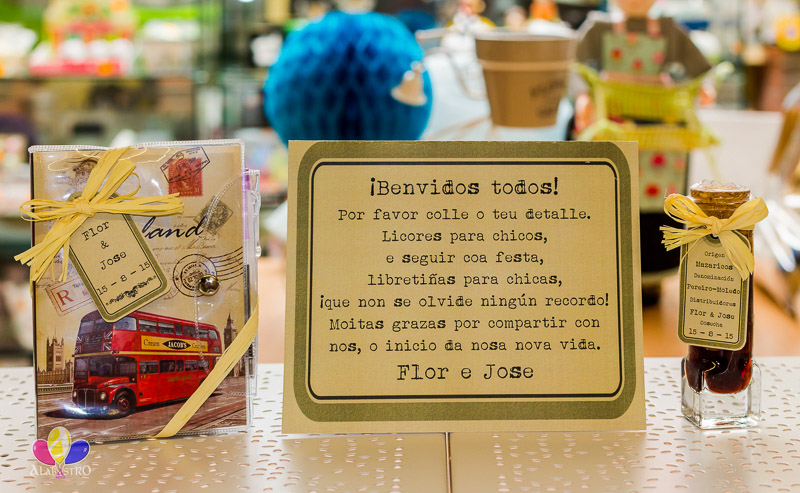 ¡Benvidos todos!
Por favor colle o teu detalle.
Licores para chicos,
e seguir coa festa,
libretiñas para chicas,
¡que non se olvide ningún recordo!
Moitas grazas por compartir con
nos, o inicio da nosa nova vida.
Flor e Jose
Flor
&
Jose
15 - 8 - 15
land
R
Cream
JACOB'S
Crackers
Origen
Mazaricos
Denominación
Pereiro-Moledo
Distribuidores
Flor & Jose
Cosecha
15 - 8 - 15
ALABASTRO